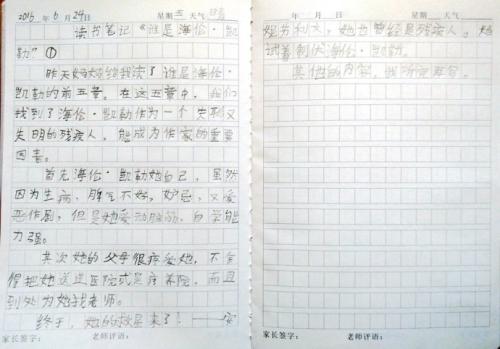 2015年6月24日 星期五 天气 晴
读书笔记“谁是海伦·凯
勒？”①
昨天妈妈给我读了谁是海伦·
凯勒的前五章。在这五章中，我们
找到了海伦·凯勒作为一个失聪又
失明的残疾人，能成为作家的重要
因素。
首先海伦·凯勒她自己，虽然
因为生病，脾气不好，妒忌，又爱
恶作剧，但是她爱动脑筋，自学能
力强。
其次她的父母很疼爱她，不舍
得把她送进医院或是疗养院，而且
到处为她找老师。
终于，她的救星来了！——安
家长签字： 老师评语：
年 月 日 星期 天气
妮·莎利文，她也曾经是残疾人。她
试着制伏海伦·凯勒。
其他的内容，我所定再写。
家长签字： 老师评语：